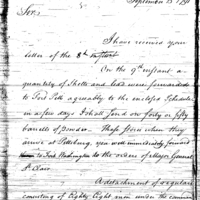 September 15 1791
Sir,
I have received your
letter of the 8th instant
On the 9th instant a
quantity of Shells and lead were forwarded
to Fort Pitt agreeably to the inclosed Schedule
in a few days I shall send on forty or fifty
barrells of powder. These Stores when they
arrive at Pittsburg, you will immediately forward
to Fort Washington to the orders of Major General
St Clair
A detachment of regulars
consisting of Eighty Eight men under the